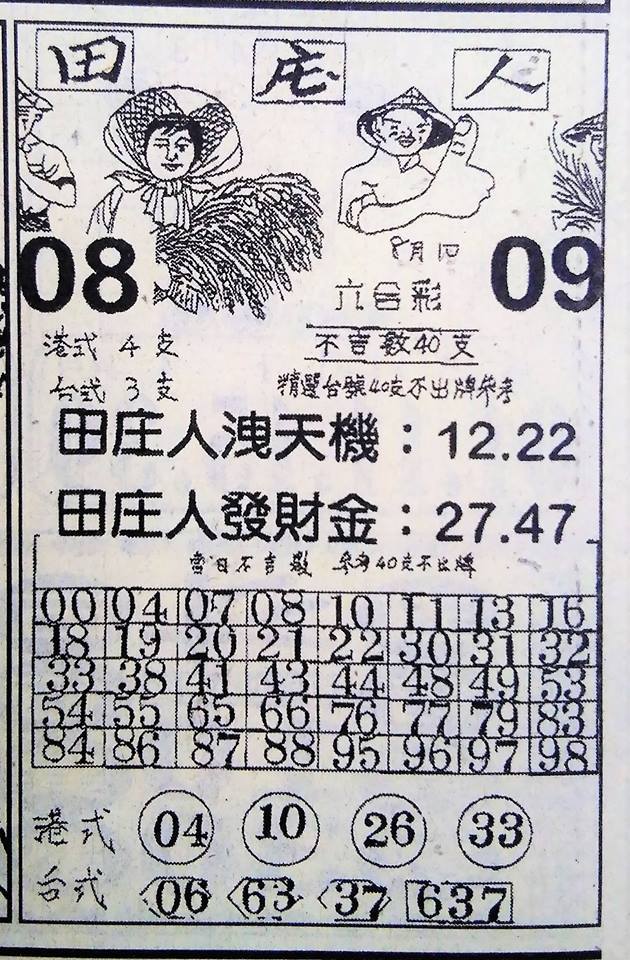 田 庄 人
08 09
8月10
六合彩
港式 4支 不吉數40支
台式 3支 精選台號40支不出牌參考
田庄人洩天機：12.22
田庄人發財金：27.47
當日不吉數 參考40支不出牌
00 04 07 08 10 11 13 16
18 19 20 21 22 30 31 32
33 38 41 43 44 48 49 53
54 55 65 66 76 77 79 83
84 86 87 88 95 96 97 98
港式 04 10 26 33
台式 06 63 37 637